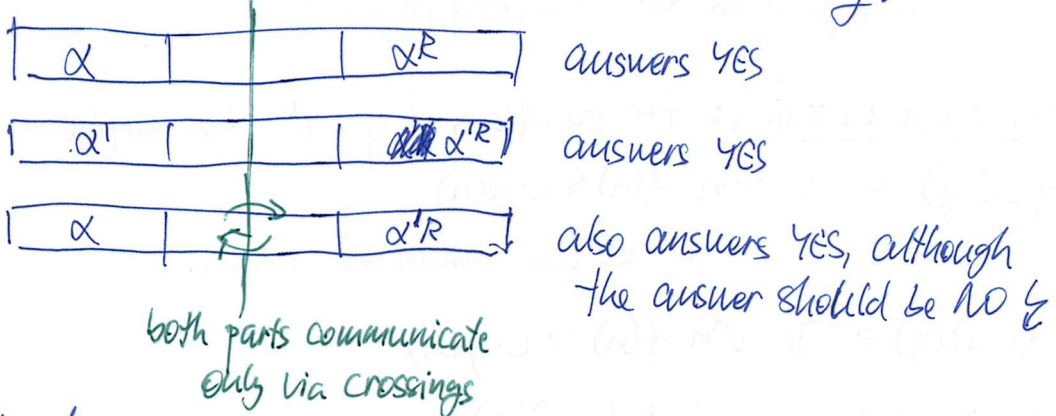 α α^R answers YES
α' α'^R answers YES
α α'^R also answers YES, although
the answer should be NO ↯
both parts communicate
only via crossings